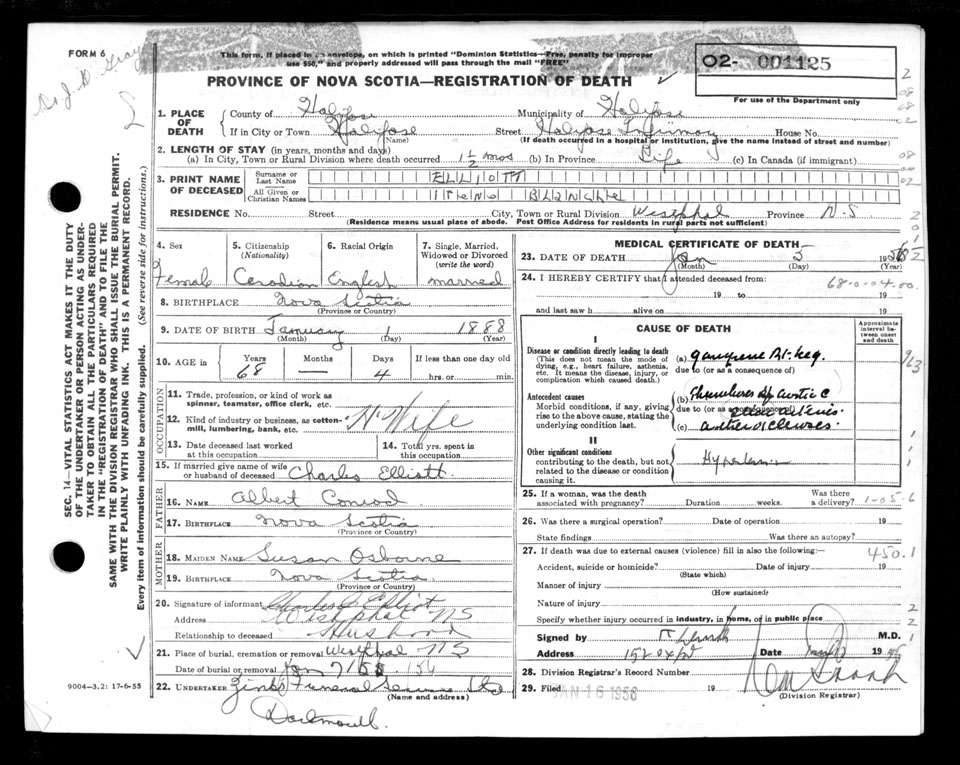 FORM 6
This form, if placed in an envelope, on which is printed "Dominion Statistics—Free, penalty for improper
use $50," and properly addressed will pass through the mail "FREE"
PROVINCE OF NOVA SCOTIA—REGISTRATION OF DEATH
02- 001125
For use of the Department only
1. PLACE OF DEATH
County of Halifax Municipality of Halifax
If in City or Town Halifax (Name) Street Halifax Infirmary House No.
(If death occurred in a hospital or institution, give the name instead of street and number)
2. LENGTH OF STAY (in years, months and days)
(a) In City, Town or Rural Division where death occurred 1½ mos (b) In Province Life (c) In Canada (if immigrant)
3. PRINT NAME OF DECEASED
Surname or Last Name ELLIOTT
All Given or Christian Names IRENE BLANCHE
RESIDENCE No. Street City, Town or Rural Division Westphal Province N.S
(Residence means usual place of abode. Post Office Address for residents in rural parts not sufficient)
4. Sex Female
5. Citizenship (Nationality) Canadian
6. Racial Origin English
7. Single, Married, Widowed or Divorced (write the word) married
8. BIRTHPLACE Nova Scotia
(Province or Country)
9. DATE OF BIRTH January 1 1888
(Month) (Day) (Year)
10. AGE in Years 68 Months — Days 4 If less than one day old hrs. or min.
OCCUPATION
11. Trade, profession, or kind of work as spinner, teamster, office clerk, etc.
12. Kind of industry or business, as cotton-mill, lumbering, bank, etc. H. Wife
13. Date deceased last worked at this occupation
14. Total yrs. spent in this occupation
15. If married give name of wife or husband of deceased Charles Elliott
FATHER
16. NAME Albert Conrod
17. BIRTHPLACE Nova Scotia
(Province or Country)
MOTHER
18. MAIDEN NAME Susan Osborne
19. BIRTHPLACE Nova Scotia
(Province or Country)
20. Signature of informant Charles Elliot
Address Westphal NS
Relationship to deceased Husband
21. Place of burial, cremation or removal Westphal NS
Date of burial or removal Jan 7/
22. UNDERTAKER Zinks Funeral Service Ltd
(Name and address)
Dartmouth
9004—3.2: 17-6-55
MEDICAL CERTIFICATE OF DEATH
23. DATE OF DEATH Jan 5 1956
(Month) (Day) (Year)
24. I HEREBY CERTIFY that I attended deceased from:
68-0-04.00
19 to 19
and last saw h alive on 19
CAUSE OF DEATH
Approximate interval between onset and death
I
Disease or condition directly leading to death
(This does not mean the mode of dying, e.g., heart failure, asthenia, etc. It means the disease, injury, or complication which caused death.)
(a) gangrene Rt. Leg.
due to (or as a consequence of)
Antecedent causes
Morbid conditions, if any, giving rise to the above cause, stating the underlying condition last.
due to (or as a consequence of)
(c)
II
Other significant conditions
contributing to the death, but not related to the disease or condition causing it.
25. If a woman, was the death associated with pregnancy? Duration weeks. Was there a delivery? 1-05-6
26. Was there a surgical operation? Date of operation 19
State findings Was there an autopsy?
27. If death was due to external causes (violence) fill in also the following:— 450.1
Accident, suicide or homicide? Date of injury 19
(State which)
Manner of injury
(How sustained)
Nature of injury
Specify whether injury occurred in industry, in home, or in public place
Signed by M.D.
Address Date 19
28. Division Registrar's Record Number
29. Filed JAN 16 1956 19
(Division Registrar)
SEC. 14—VITAL STATISTICS ACT MAKES IT THE DUTY
OF THE UNDERTAKER OR PERSON ACTING AS UNDER-
TAKER TO OBTAIN ALL THE PARTICULARS REQUIRED
IN THE "REGISTRATION OF DEATH" AND TO FILE THE
SAME WITH THE DIVISION REGISTRAR WHO SHALL ISSUE THE BURIAL PERMIT.
WRITE PLAINLY WITH UNFADING INK. THIS IS A PERMANENT RECORD.
Every item of information should be carefully supplied. (See reverse side for instructions.)